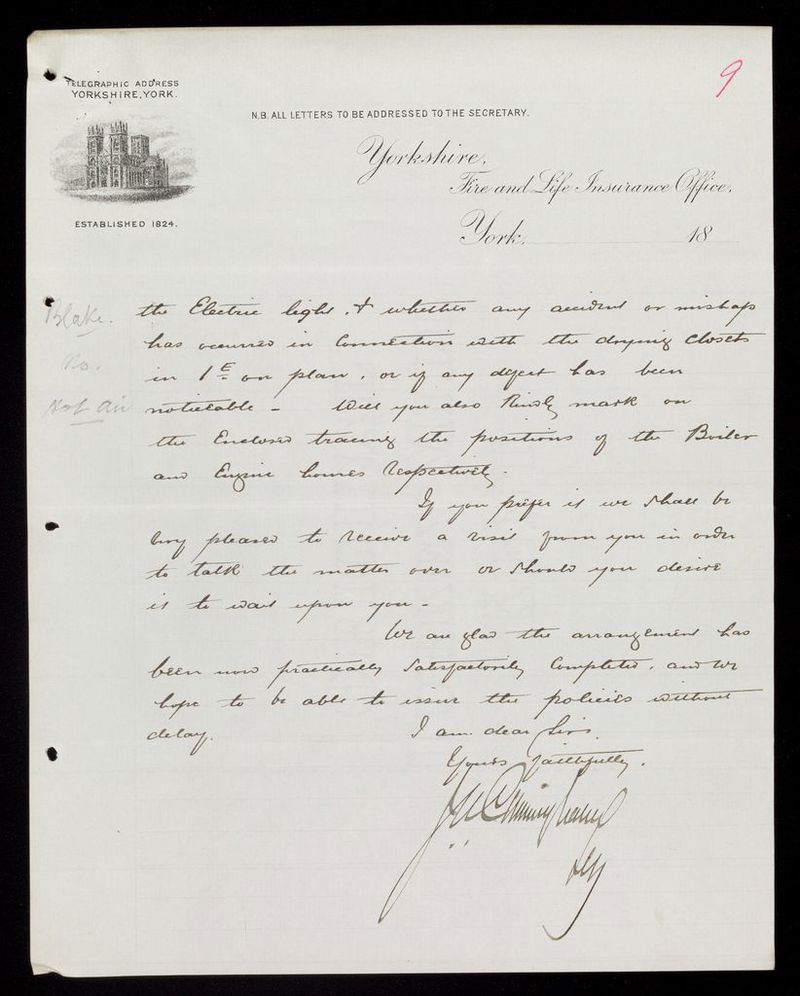 9
TELEGRAPHIC ADDRESS
YORKSHIRE, YORK.
N.B. ALL LETTERS TO BE ADDRESSED TO THE SECRETARY.
Yorkshire,
Fire and Life Insurance Office,
ESTABLISHED 1824.
York, 18
Blake.
No.
Hot Air
the Electric light, & whether any accident or mishap
has occurred in Connection with the drying Closets
in 1E on plan, or if any defect has been
noticeable - Will you also Kindly mark on
the Enclosed tracing the positions of the Boiler
and Engine houses Respectively.
If you prefer it we shall be
very pleased to receive a visit from you in order
to talk the matter over or should you desire
it to wait upon you -
We are glad the arrangement has
been now practically Satisfactorily Completed, and we
hope to be able to issue the policies without
delay.
I am dear Sirs.
Yours faithfully.
Cunningham